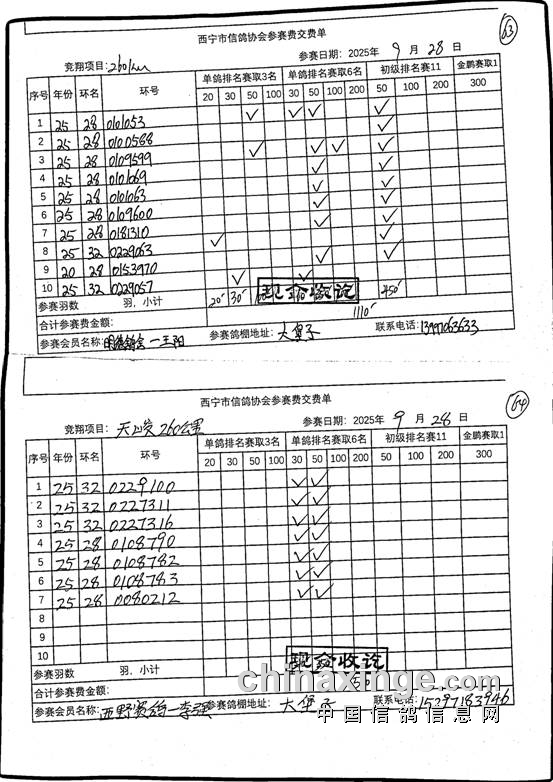 西宁市信鸽协会参赛费交费单
63
竞翔项目: 260km 参赛日期: 2025年 9 月 28 日
序号 年份 环名 环号 单鸽排名赛取3名 单鸽排名赛取6名 初级排名赛11 金鹏赛取1
20 30 50 100 30 50 100 200 50 100 200 300
1 25 28 0101053 ✓ ✓ ✓ ✓
2 25 28 0100588 ✓
3 25 28 0109599 ✓ ✓ ✓ ✓
4 25 28 0101069 ✓ ✓
5 25 28 0101063 ✓ ✓
6 25 28 0109600 ✓ ✓
7 25 28 0181310 ✓ ✓
8 25 32 0229063 ✓ ✓
9 20 28 0153970 ✓ ✓
10 25 32 0229057 ✓ ✓
参赛羽数 羽,小计 20 30 现金收讫 450
合计参赛费金额: 1110
参赛会员名称: 一王阳 参赛鸽棚地址: 大堡子 联系电话: 13997063633
西宁市信鸽协会参赛费交费单
64
竞翔项目: 天峻 260公里 参赛日期: 2025年 9 月 28 日
序号 年份 环名 环号 单鸽排名赛取3名 单鸽排名赛取6名 初级排名赛11 金鹏赛取1
20 30 50 100 30 50 100 200 50 100 200 300
1 25 32 0229100 ✓ ✓
2 25 32 0227311 ✓ ✓
3 25 32 0227316 ✓ ✓
4 25 28 0108790 ✓ ✓
5 25 28 0108782 ✓ ✓
6 25 28 0108783 ✓ ✓
7 25 28 0080212 ✓ ✓
8
9
10
参赛羽数 羽,小计 现金收讫
合计参赛费金额:
参赛会员名称: 西野赛鸽一李强 参赛鸽棚地址: 大堡子 联系电话: 15297183946
chinaxinge.com
中国信鸽信息网